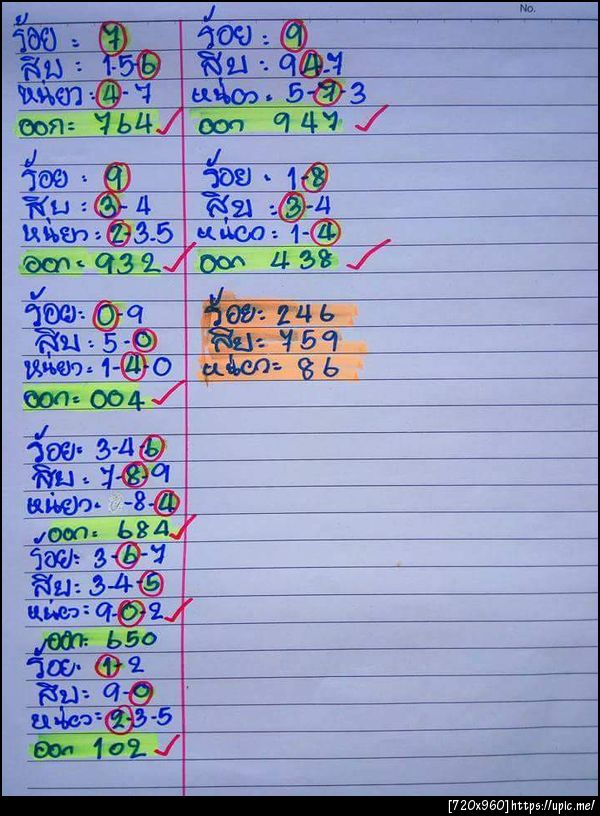 No.
ร้อย : 7
สิบ : 1-5-6
หน่วย : 4-7
ออก = 764
ร้อย : 9
สิบ : 3-4
หน่วย : 2-3-5
ออก = 932
ร้อย : 0-9
สิบ : 5-0
หน่วย : 1-4-0
ออก = 004
ร้อย : 3-4-6
สิบ : 7-8-9
หน่วย : -8-4
ออก = 684
ร้อย : 3-6-7
สิบ : 3-4-5
หน่วย = 9-0-2
ออก = 650
ร้อย : 1-2
สิบ : 9-0
หน่วย = 2-3-5
ออก 102
ร้อย : 9
สิบ : 9-4-7
หน่วย : 5-7-3
ออก 947
ร้อย : 1-8
สิบ : 3-4
หน่วย : 1-4
ออก 438
ร้อย = 246
สิบ = 759
หน่วย = 86
[720x960] https://upic.me/